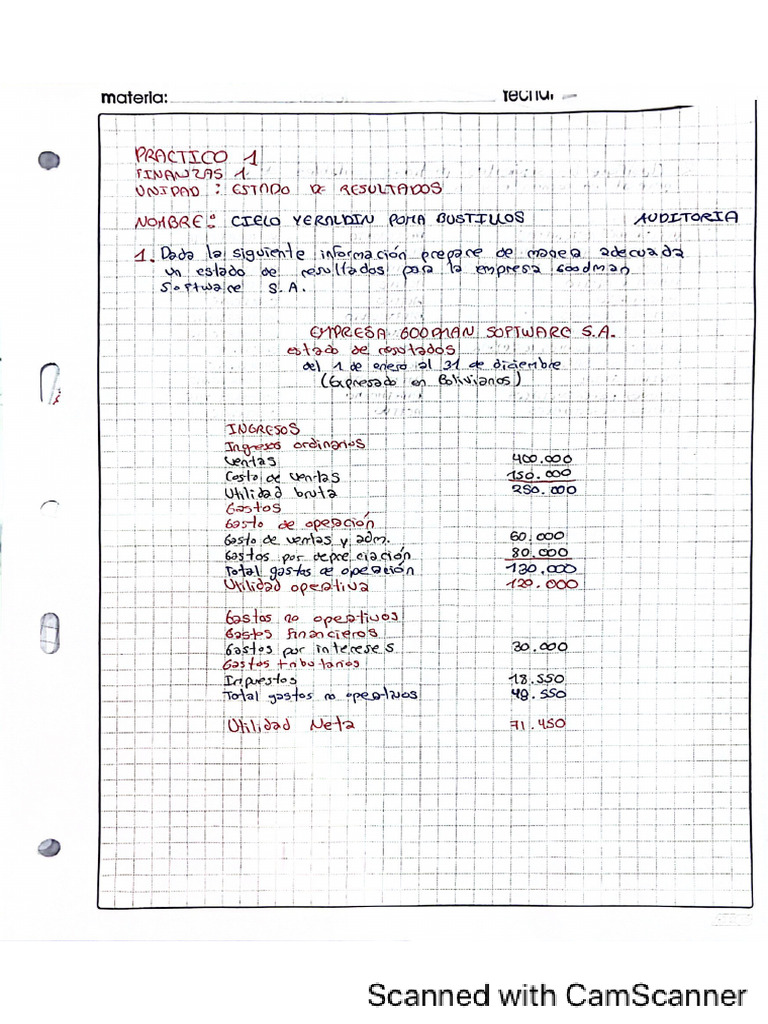 materia:
fecha:
PRACTICO 1
FINANZAS 1
UNIDAD : ESTADO DE RESULTADOS
NOMBRE : CIELO YERALDIN POMA BUSTILLOS AUDITORIA
1. Dada la siguiente información prepare de manea adecuada
un estado de resultados para la empresa Goodman
Software S.A.
EMPRESA GOODMAN SOFTWARE S.A.
estado de resultados
del 1 de enero al 31 de diciembre
(Expresado en Bolivianos)
INGRESOS
Ingresos ordinarios
Ventas 400.000
Costo de ventas 150.000
Utilidad bruta 250.000
Gastos
Gasto de operación
Gasto de ventas y adm. 60.000
Gastos por depreciación 80.000
Total gastos de operación 130.000
Utilidad operativa 120.000
Gastos no operativos
Gastos financieros
Gastos por intereses 30.000
Gastos tributarios
Impuestos 18.550
Total gastos no operativos 48.550
Utilidad Neta 71.450
Scanned with CamScanner